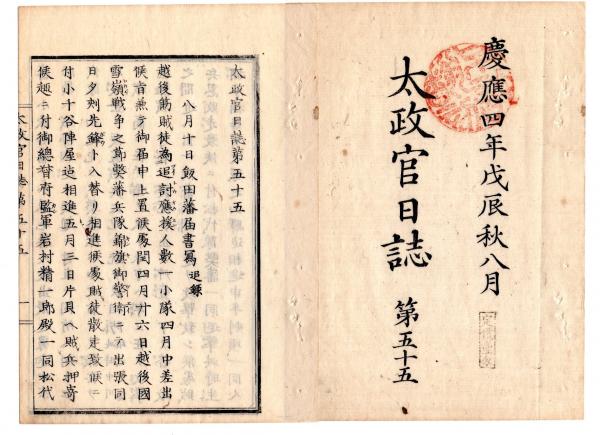 慶應四年戊辰秋八月
太政官日誌 第五十五
太政官日誌第五十五
八月十日飯田藩届書寫 追録
越後筋賊徒為追討應援人数一小隊四月中差出
候旨兼テ御届申上置候處閏四月廿六日越後國
雪嶺戦争之節弊藩兵隊錦旗御警衛ニテ出張同
日夕刻先鋒ト入替リ相進候處賊徒散走致候ニ
付小千谷陣屋迠相進五月三日片貝ヘ賊兵押寄
候趣ニ付御總督府監軍岩村精一郎殿一同松代
太政官日誌第五十五 一